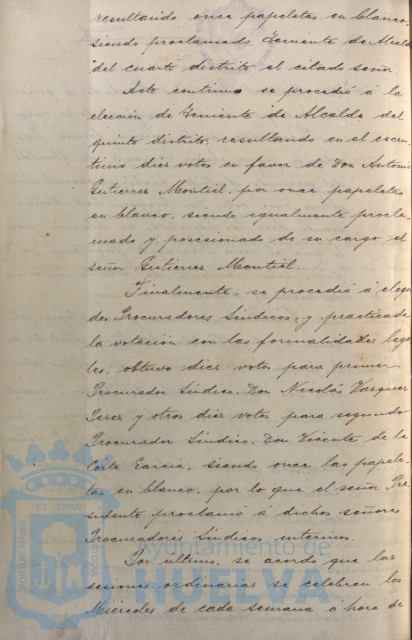 resultando once papeletas en blanco,
siendo proclamado Teniente de Alcalde
del cuarto distrito el citado señor.
Acto continuo se procedió á la
elección de Teniente de Alcalde del
quinto distrito, resultando en el escru-
tinio diez votos en favor de Don Antonio
Gutierres Montiel, por once papeletas
en blanco, siendo igualmente procla-
mado y posesionado de su cargo el
señor Gutierres Montiel.
Finalmente, se procedió á elegir
dos Procuradores Síndicos, y practicada
la votación con las formalidades lega-
les, obtuvo diez votos para primer
Procurador Síndico, Don Nicolás Vazquez
Perez y otros diez votos para segundo
Procurador Síndico, Don Vicente de la
Corte Garcia, siendo once las papele-
tas en blanco, por lo que el señor Pre-
sidente proclamó á dichos señores
Procuradores Síndicos interinos.
Por ultimo, se acordó que las
sesiones ordinarias se celebren los
Miércoles de cada semana á hora de
ET TERRA
PORTUS MARIS
CUSTODIA
Ayuntamiento de
HUELVA